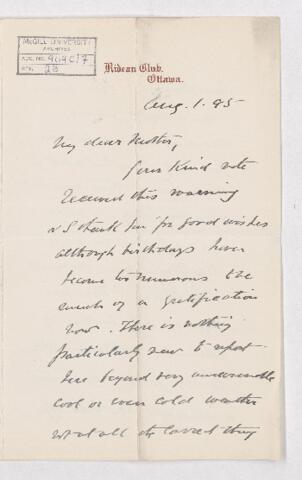 McGILL UNIVERSITY
ARCHIVES
ACC. NO. 909C/7
REF. 23
Rideau Club.
Ottawa.
Aug. 1. 85
My dear Mother,
Your kind note
received this morning
& I thank you for good wishes
although birthdays have
become too numerous to be
much of a gratification
now. There is nothing
particularly new to report
here beyond very unseasonable
cool or even cold weather
not at all the correct thing